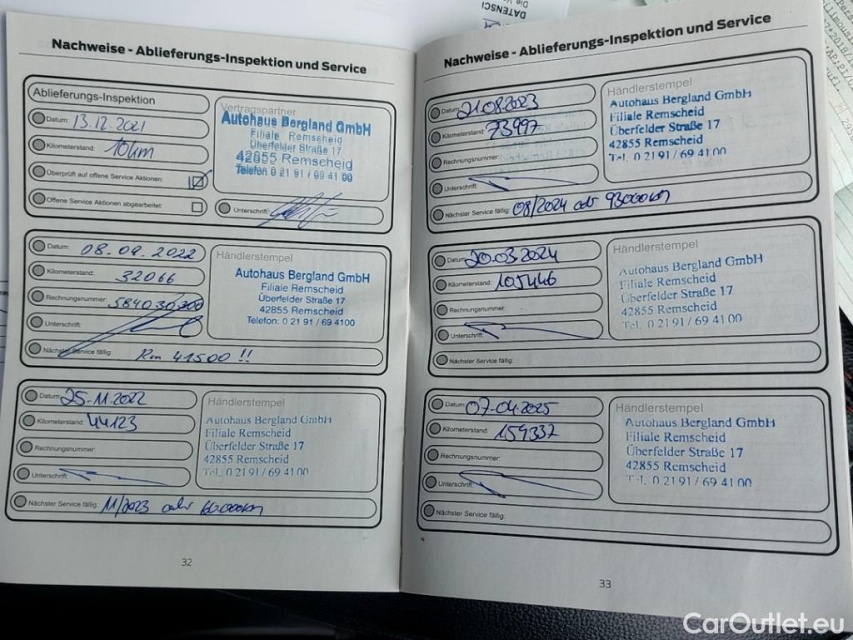 DATENSC
Nachweise - Ablieferungs-Inspektion und Service
Ablieferungs-Inspektion
Datum: 13.12.2021
Kilometerstand: 10km
Überprüft auf offene Service Aktionen:
Offene Service Aktionen abgearbeitet:
Vertragspartner
Autohaus Bergland GmbH
Filiale Remscheid
Überfelder Straße 17
42855 Remscheid
Telefon 0 21 91 / 69 41 00
Unterschrift:
Datum: 08.09.2022
Kilometerstand: 32066
Rechnungsnummer: 584030300
Unterschrift:
Nächster Service fällig: Km 41500 !!
Händlerstempel
Autohaus Bergland GmbH
Filiale Remscheid
Überfelder Straße 17
42855 Remscheid
Telefon: 0 21 91 / 69 4100
Datum: 25.11.2022
Kilometerstand: 44123
Rechnungsnummer:
Unterschrift:
Nächster Service fällig: 11/2023 oder 60000km
Händlerstempel
Autohaus Bergland GmbH
Filiale Remscheid
Überfelder Straße 17
42855 Remscheid
Tel. 0 21 91 / 69 41 00
32
Nachweise - Ablieferungs-Inspektion und Service
Datum: 21.08.2023
Kilometerstand: 73997
Rechnungsnummer:
Unterschrift:
Nächster Service fällig: 08/2024 oder 93000km
Händlerstempel
Autohaus Bergland GmbH
Filiale Remscheid
Überfelder Straße 17
42855 Remscheid
Tel. 0 21 91 / 69 41 00
Datum: 20.03.2024
Kilometerstand: 105446
Rechnungsnummer:
Unterschrift:
Nächster Service fällig:
Händlerstempel
Autohaus Bergland GmbH
Filiale Remscheid
Überfelder Straße 17
42855 Remscheid
Tel. 0 21 91 / 69 41 00
Datum: 07.04.2025
Kilometerstand: 159332
Rechnungsnummer:
Unterschrift:
Nächster Service fällig:
Händlerstempel
Autohaus Bergland GmbH
Filiale Remscheid
Überfelder Straße 17
42855 Remscheid
Tel. 0 21 91 / 69 41 00
33
CarOutlet.eu